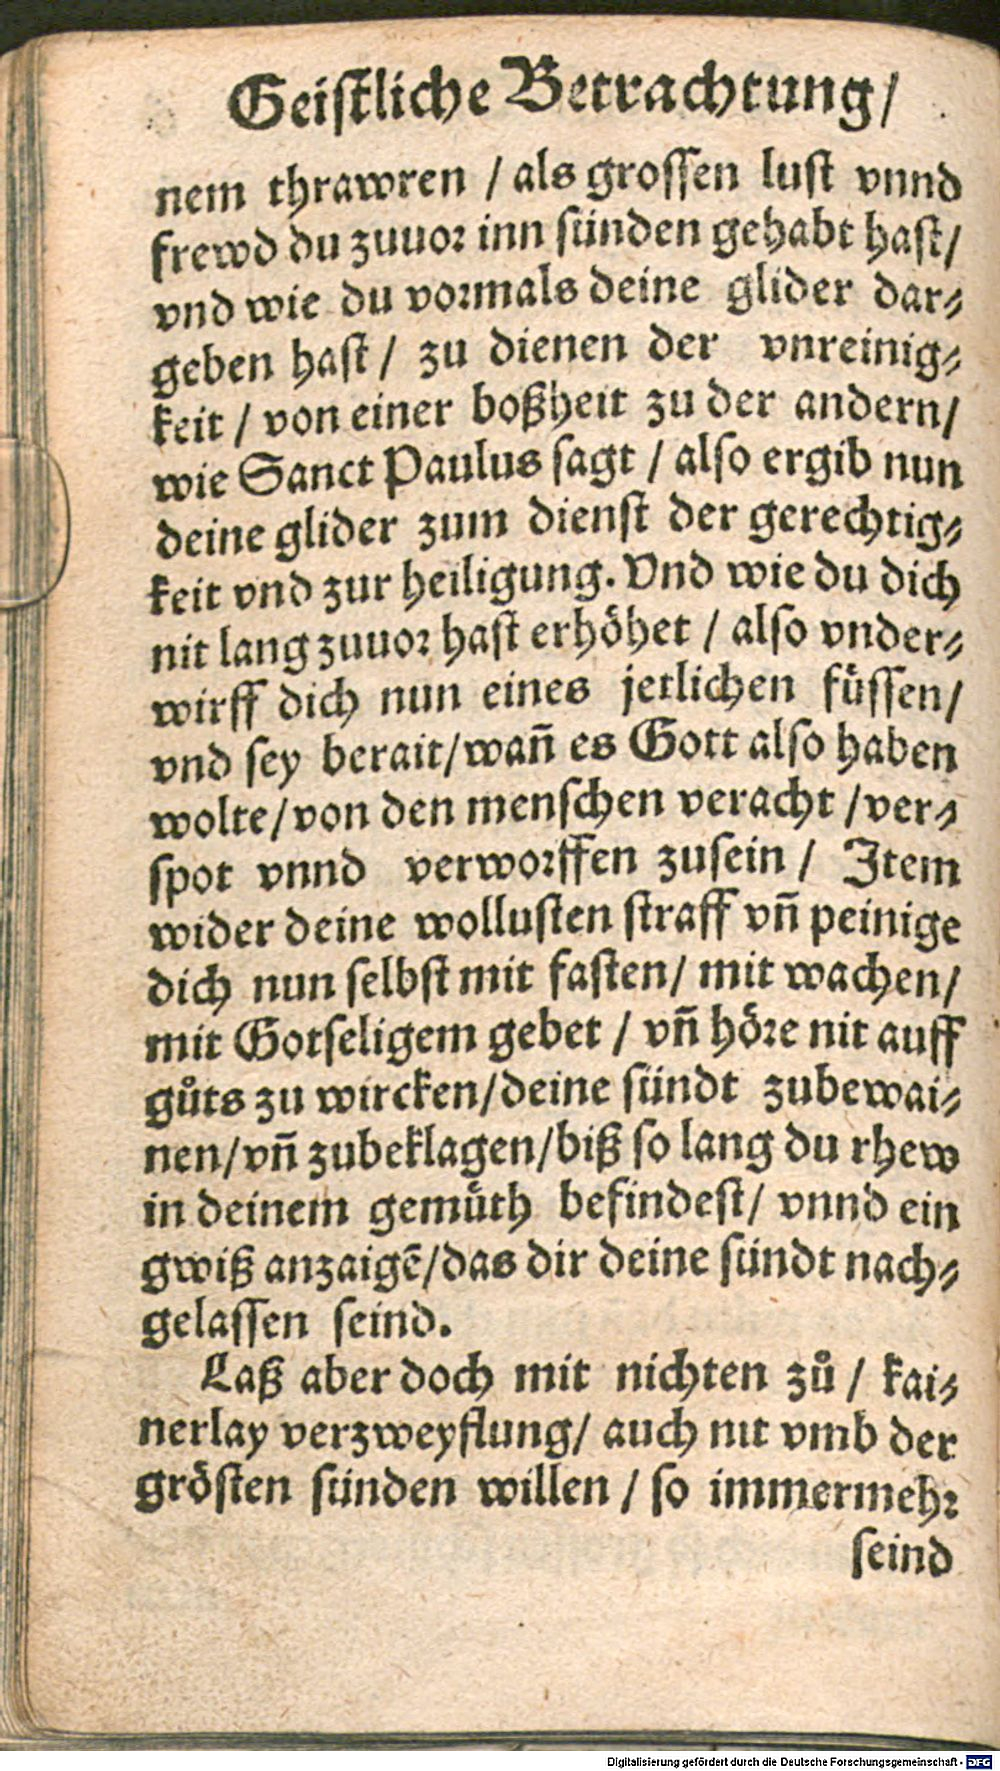 Geistliche Betrachtung/
nem thrawren / als grossen lust vnnd
frewd du zuuor inn sünden gehabt hast/
vnd wie du vormals deine glider dar-
geben hast / zu dienen der vnreinig-
keit / von einer boßheit zu der andern/
wie Sanct Paulus sagt / also ergib nun
deine glider zum dienst der gerechtig-
keit vnd zur heiligung. Vnd wie du dich
nit lang zuuor hast erhöhet / also vnder-
wirff dich nun eines jetlichen füssen/
vnd sey berait/wañ es Gott also haben
wolte/von den menschen veracht /ver-
spot vnnd verworffen zusein / Item
wider deine wollusten straff vñ peinige
dich nun selbst mit fasten/ mit wachen/
mit Gotseligem gebet / vñ höre nit auff
gůts zu wircken/deine sündt zubewai-
nen/vñ zubeklagen/biß so lang du rhew
in deinem gemüth befindest/ vnnd ein
gwiß anzaigẽ/das dir deine sündt nach-
gelassen seind.
Laß aber doch mit nichten zů / kai-
nerlay verzweyflung/ auch nit vmb der
grösten sünden willen / so immermehr
seind
Digitalisierung gefördert durch die Deutsche Forschungsgemeinschaft - DFG